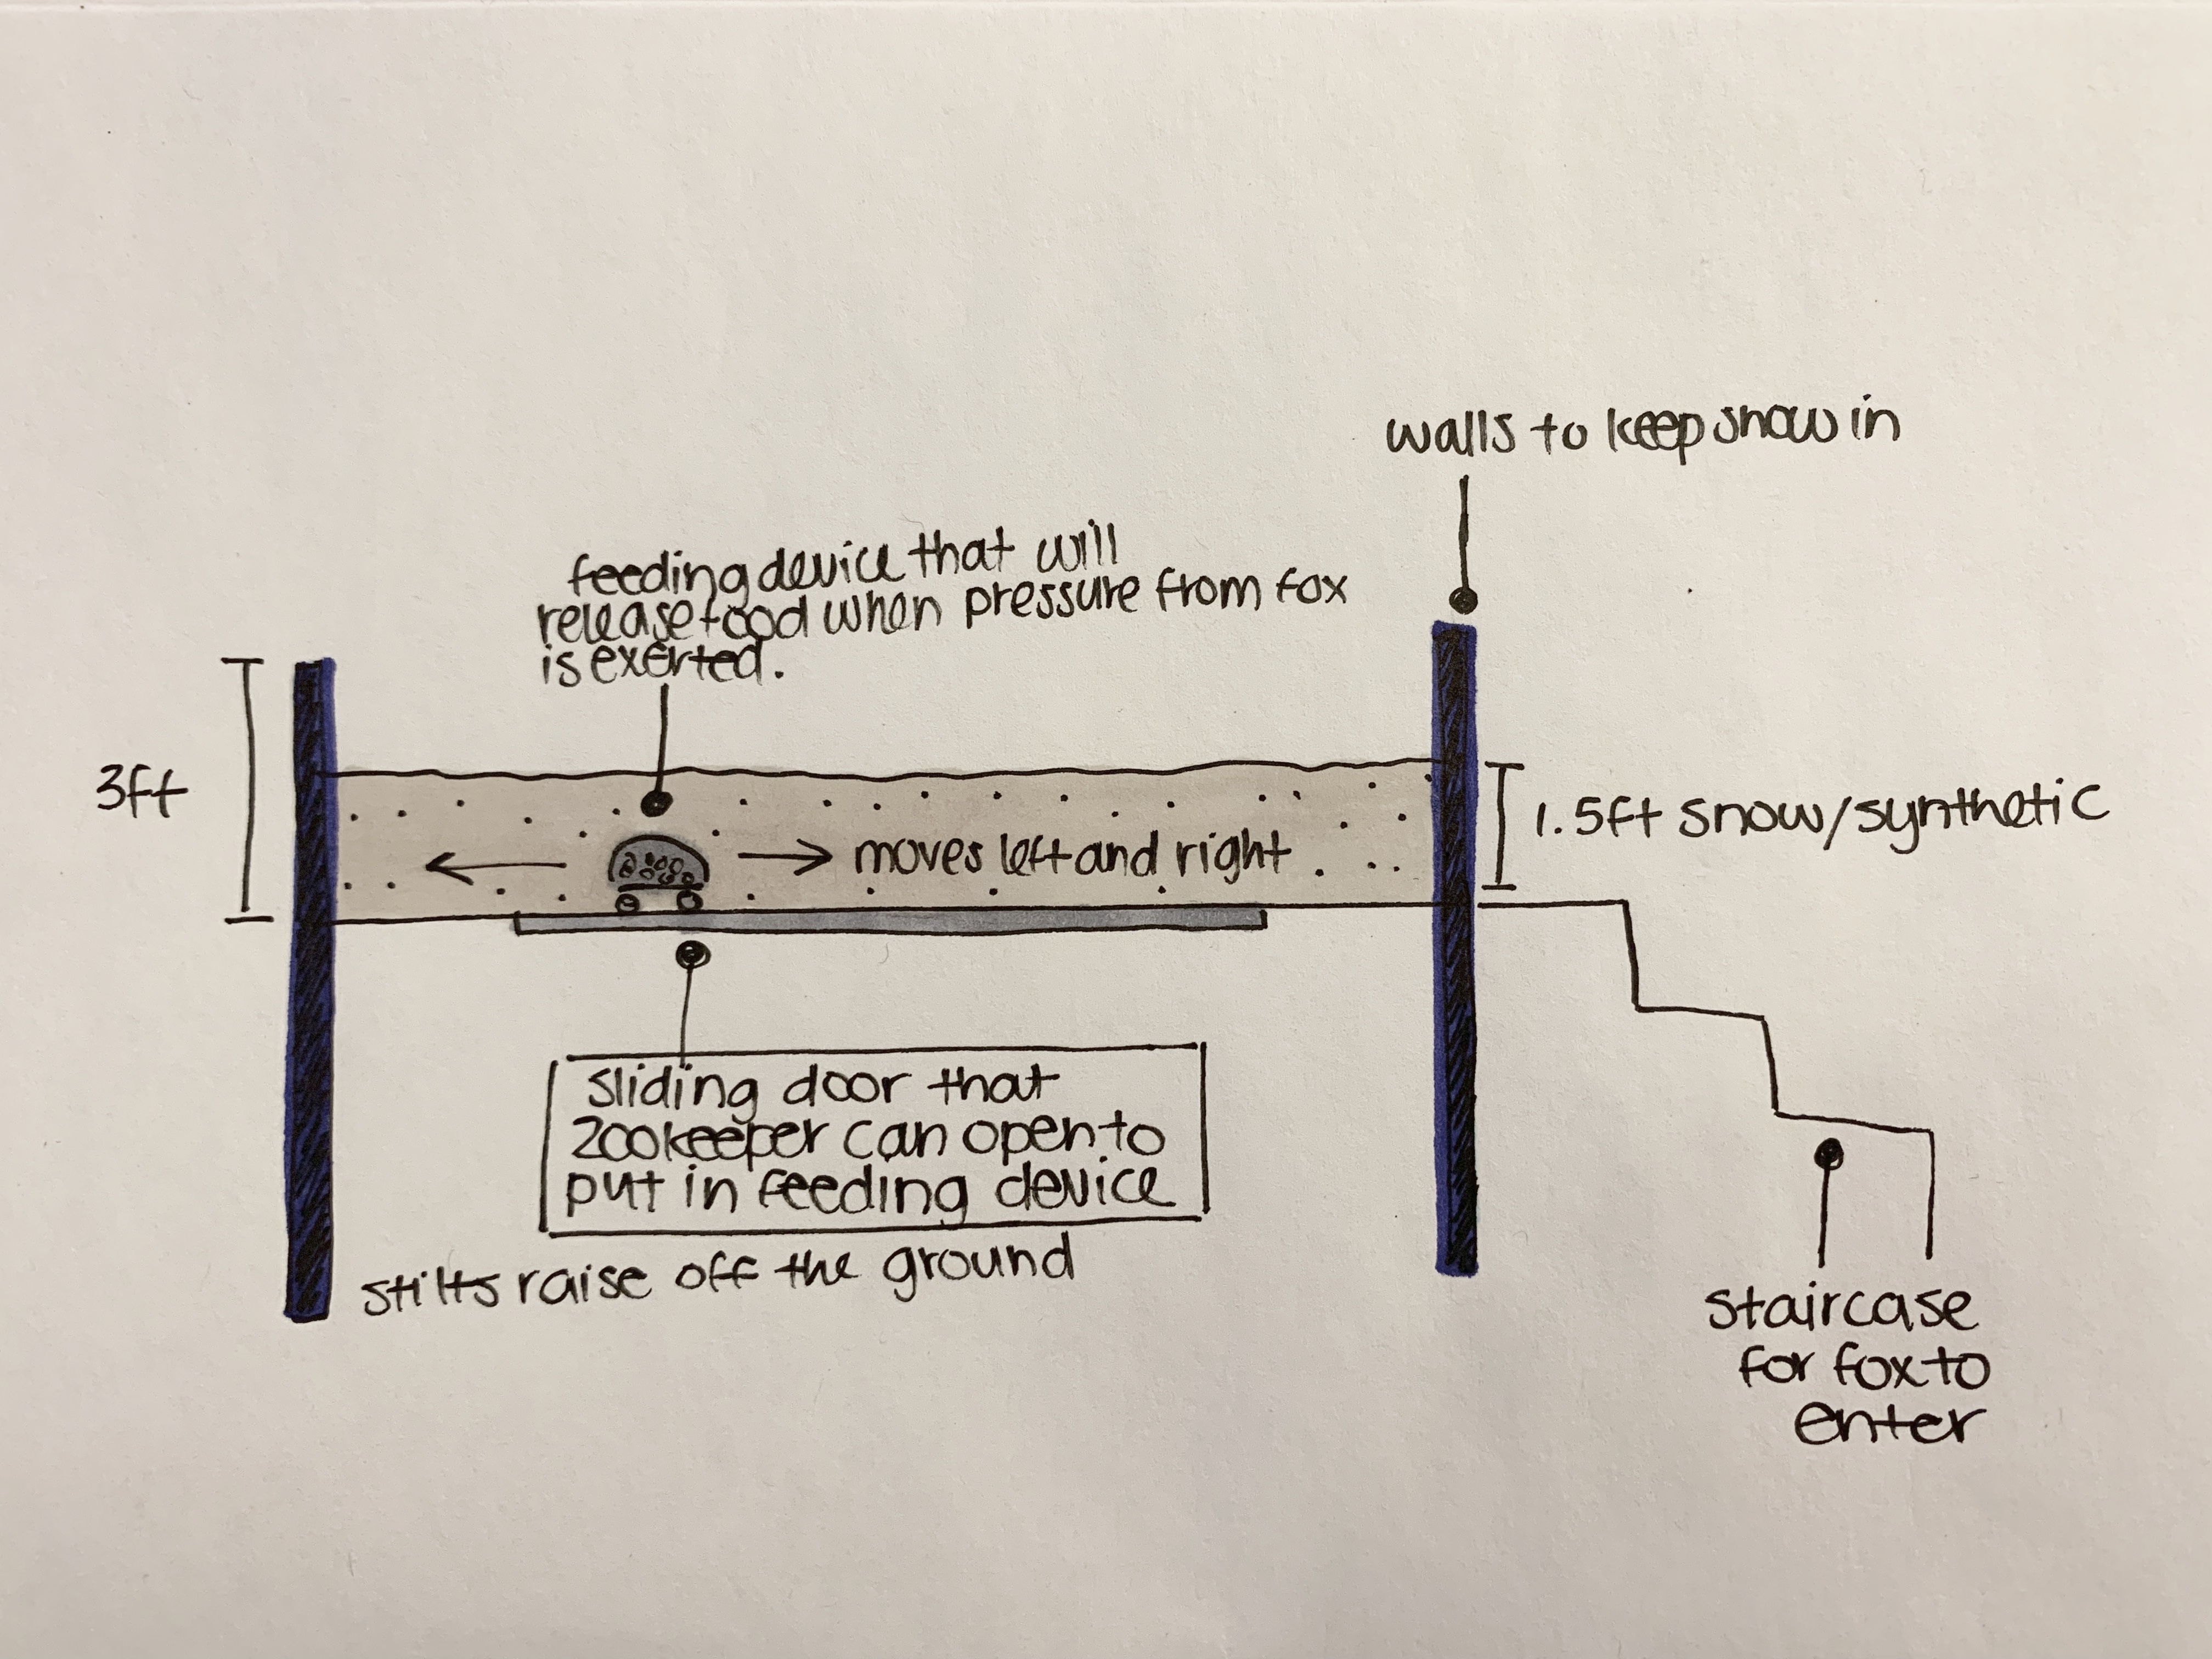 walls to keep snow in
feeding device that will
release food when pressure from fox
is exerted.
3ft
moves left and right
1.5ft snow/synthetic
sliding door that
zookeeper can open to
put in feeding device
stilts raise off the ground
staircase
for fox to
enter